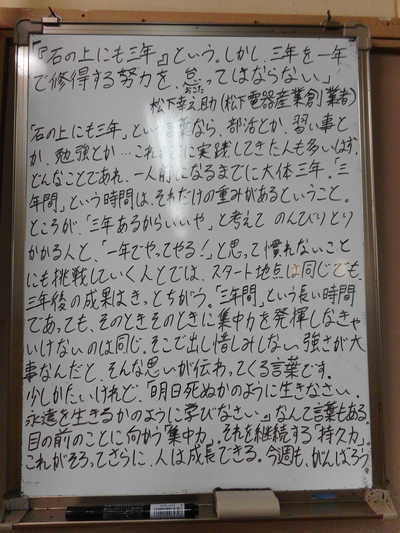 「『石の上にも三年』という。しかし、三年を一年
で修得する努力を、怠ってはならない」
おこた
松下幸之助(松下電器産業創業者)
「石の上にも三年」という言葉なら、部活とか、習い事と
か、勉強とか…これまでに実践してきた人も多いはず。
どんなことであれ、一人前になるまでに大体三年。「三
年間」という時間は、それだけの重みがあるということ。
ところが、「三年あるからいいや」と考えて のんびりとり
かかる人と、「一年でやってやる!」と思って慣れないこと
にも挑戦していく人とでは、スタート地点は同じでも、
三年後の成果はきっとちがう。「三年間」という長い時間
であっても、そのときそのときに集中力を発揮しなきゃ
いけないのは同じ。そこで出し惜しみしない強さが大
事なんだと、そんな思いが伝わってくる言葉です。
少しかたいけれど、「明日死ぬかのように生きなさい。
永遠を生きるかのように学びなさい。」なんて言葉もある。
目の前のことに向かう「集中力」。それを継続する「持久力」。
これがそろってさらに、人は成長できる。今週も、がんばろう。